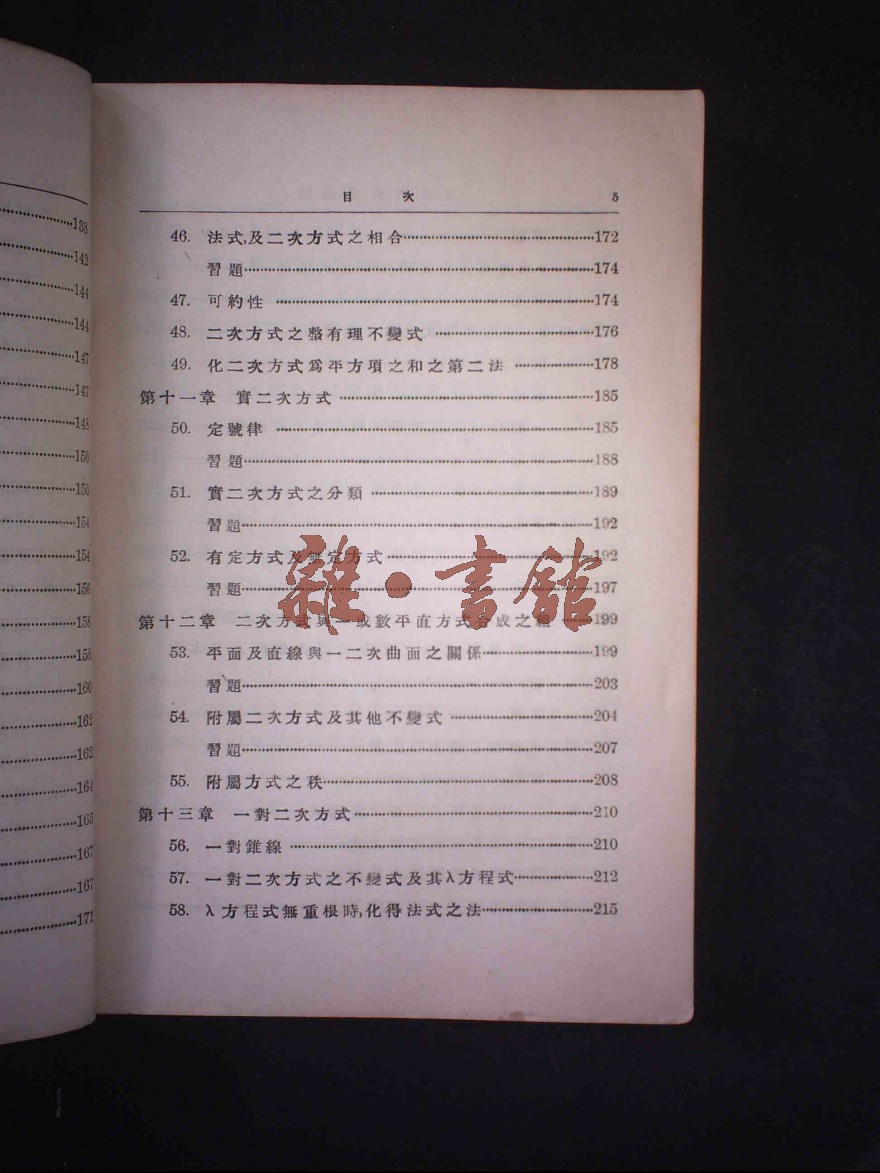 138
142
144
144
147
147
148
150
150
154
154
156
158
158
160
162
162
164
165
167
167
171
目 次 5
46. 法式,及二次方式之相合 172
習題 174
47. 可約性 174
48. 二次方式之整有理不變式 176
49. 化二次方式爲平方項之和之第二法 178
第十一章 實二次方式 185
50. 定號律 185
習題 188
51. 實二次方式之分類 189
習題 192
52. 有定方式及無定方式 192
習題 197
第十二章 二次方式與一或數平直方式合成之組 199
53. 平面及直線與一二次曲面之關係 199
習題 203
54. 附屬二次方式及其他不變式 204
習題 207
55. 附屬方式之秩 208
第十三章 一對二次方式 210
56. 一對錐線 210
57. 一對二次方式之不變式及其λ方程式 212
58. λ方程式無重根時,化得法式之法 215
雜·書館